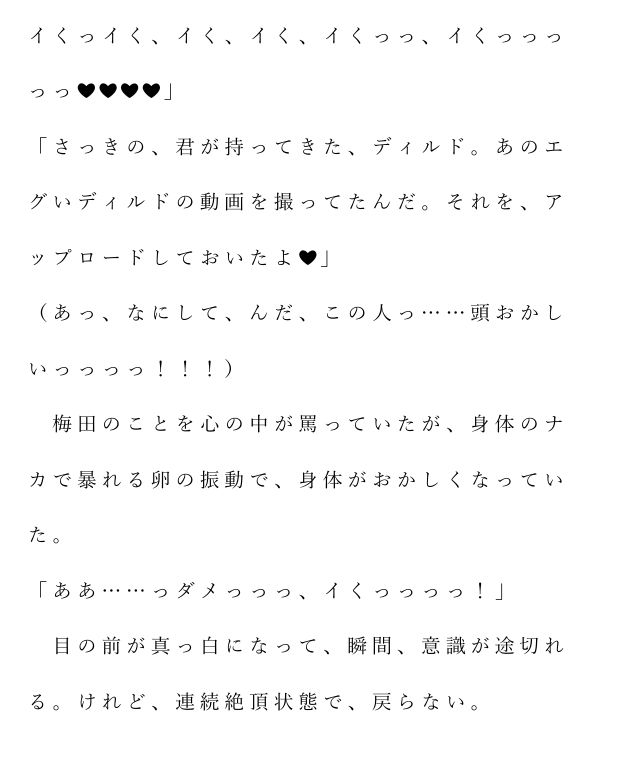 イくっイく、イく、イく、イくっっ、イくっっっ
っっ♥♥♥♥」
「さっきの、君が持ってきた、ディルド。あのエ
グいディルドの動画を撮ってたんだ。それを、ア
ップロードしておいたよ♥」
（あっ、なにして、んだ、この人っ……頭おかし
いっっっっ！！！）
　梅田のことを心の中が罵っていたが、身体のナ
カで暴れる卵の振動で、身体がおかしくなってい
た。
「ああ……っダメっっっ、イくっっっっ！」
　目の前が真っ白になって、瞬間、意識が途切れ
る。けれど、連続絶頂状態で、戻らない。